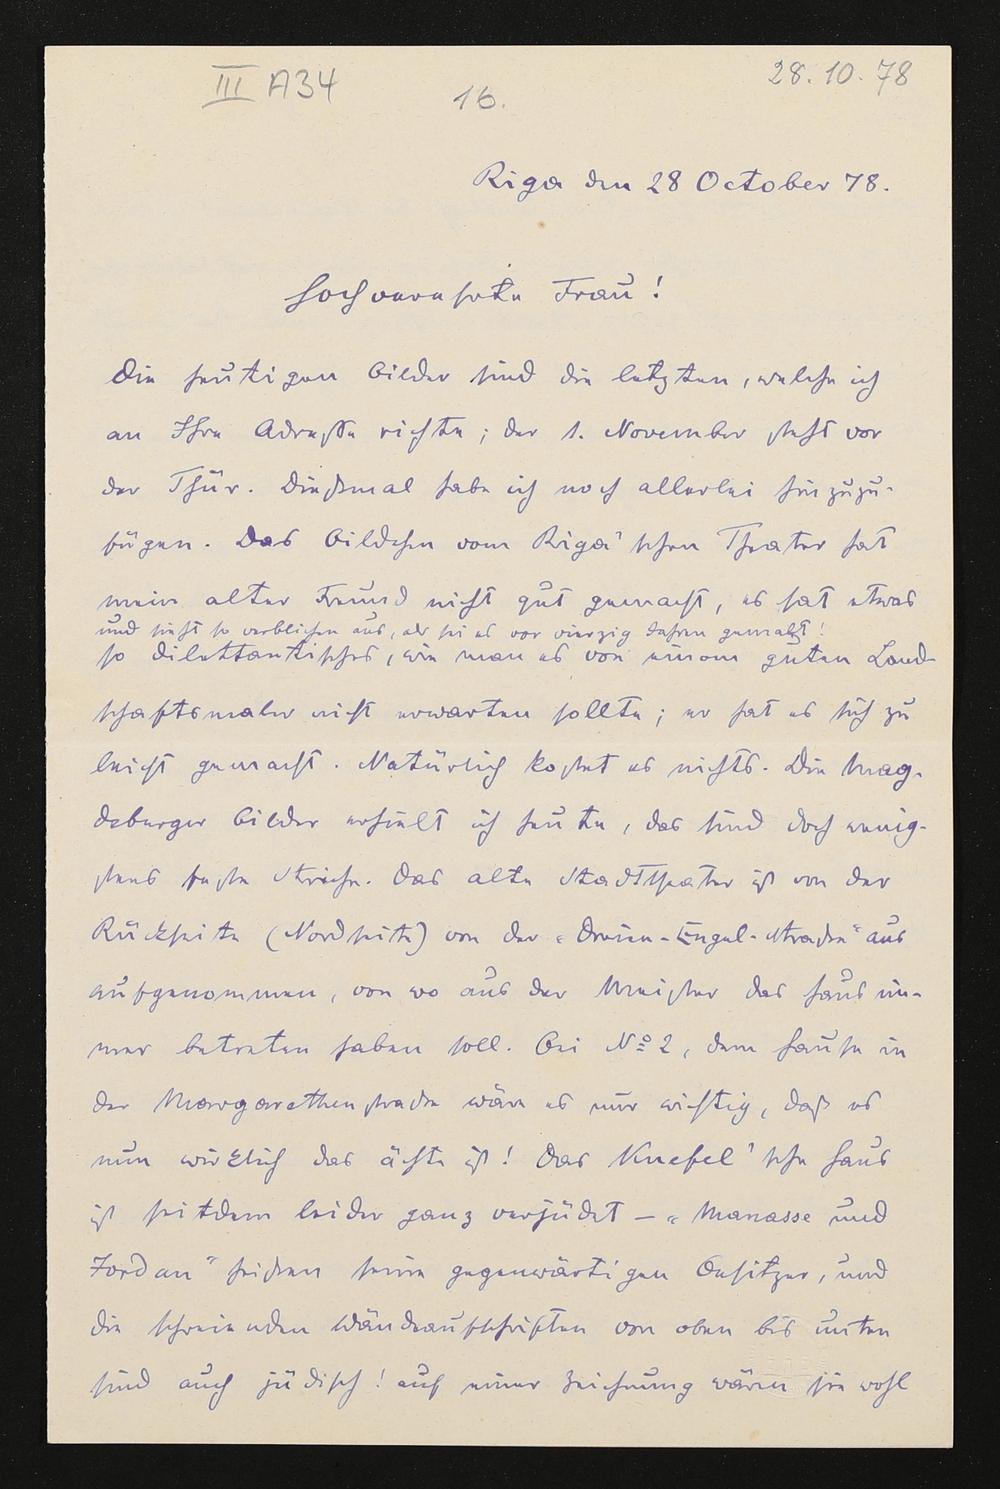 III A34
16.
28.10.78
Riga den 28 October 78.
Hochverehrte Frau!
Die heutigen Bilder sind die letzten, welche ich
an Ihre Adresse richte; der 1. November steht vor
der Thür. Diesmal habe ich noch allerlei hinzuzu-
fügen. Das Bildchen vom Riga'schen Theater hat
mein alter Freund nicht gut gemacht, es hat etwas
und sieht so verblichen aus, als sei es vor vierzig Jahren gemalt!
so dilettantisches, wie man es von einem guten Land-
schaftsmaler nicht erwarten sollte; er hat es sich zu
leicht gemacht. Natürlich kostet es nichts. Die Mag-
deburger Bilder erhielt ich heute, das sind doch wenig-
stens feste Striche. Das alte Stadttheater ist von der
Rückseite (Nordseite) von der „Dreien-Engel-Straße" aus
aufgenommen, von wo aus der Meister das Haus im-
mer betreten haben soll. Bei No 2, dem Hause in
der Margarethenstraße wäre es nur wichtig, daß es
nun wirklich das ächte ist! Das Knefel'sche Haus
ist seitdem leider ganz verjüdet – „Manasse und
Jordan" heißen seine gegenwärtigen Besitzer, und
die schreienden Wändeaufschriften von oben bis unten
sind auch jüdisch! auf einer Zeichnung wären sie wohl